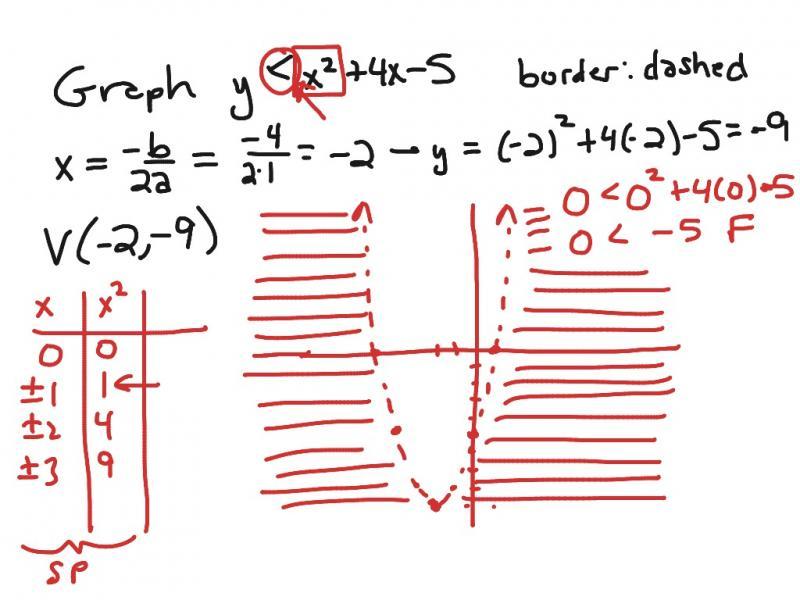 Graph y < x² + 4x - 5 border: dashed
x = -b/2a = -4/2·1 = -2 → y = (-2)² + 4(-2) - 5 = -9
0 < 0² + 4(0) - 5
V(-2, -9)
0 < -5 F
x x²
0 0
±1 1
±2 4
±3 9
SP